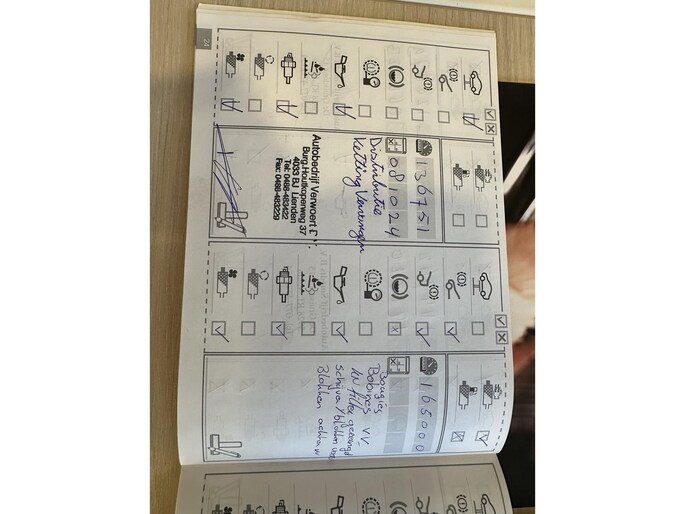 24
136751
081024
Distributie
Ketting Vervangen
Autobedrijf Verwoert
Burg Houtkoperweg 37
4033 BJ Lienden
Tel: 0488-483422
Fax: 0488-483229
165000
Bougies
Bobines VV.
KN filter gereinigd
Schijven / blokken voor
Blokken achter